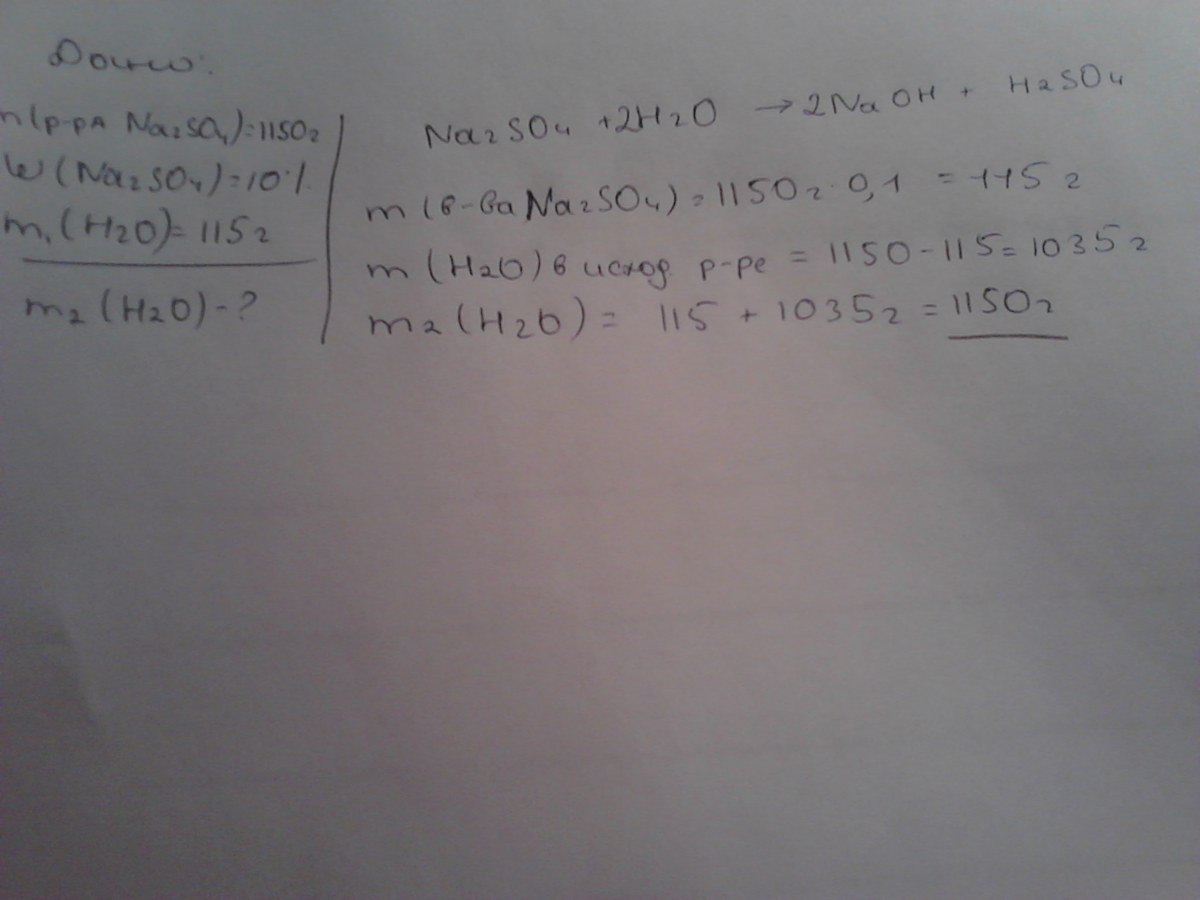 Дано:
m(р-ра Na2SO4)=1150г
W(Na2SO4)=10%
m1(H2O)=115г
m2(H2O)-?
Na2SO4 +2H2O → 2NaOH + H2SO4
m(в-ва Na2SO4)=1150г·0,1 = 115г
m(H2O) в исход р-ре = 1150-115=1035г
m2(H2O)= 115 + 1035г = 1150г